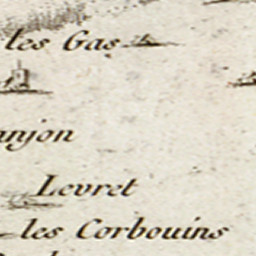 les Gas
anjon
Levret
les Corbouins